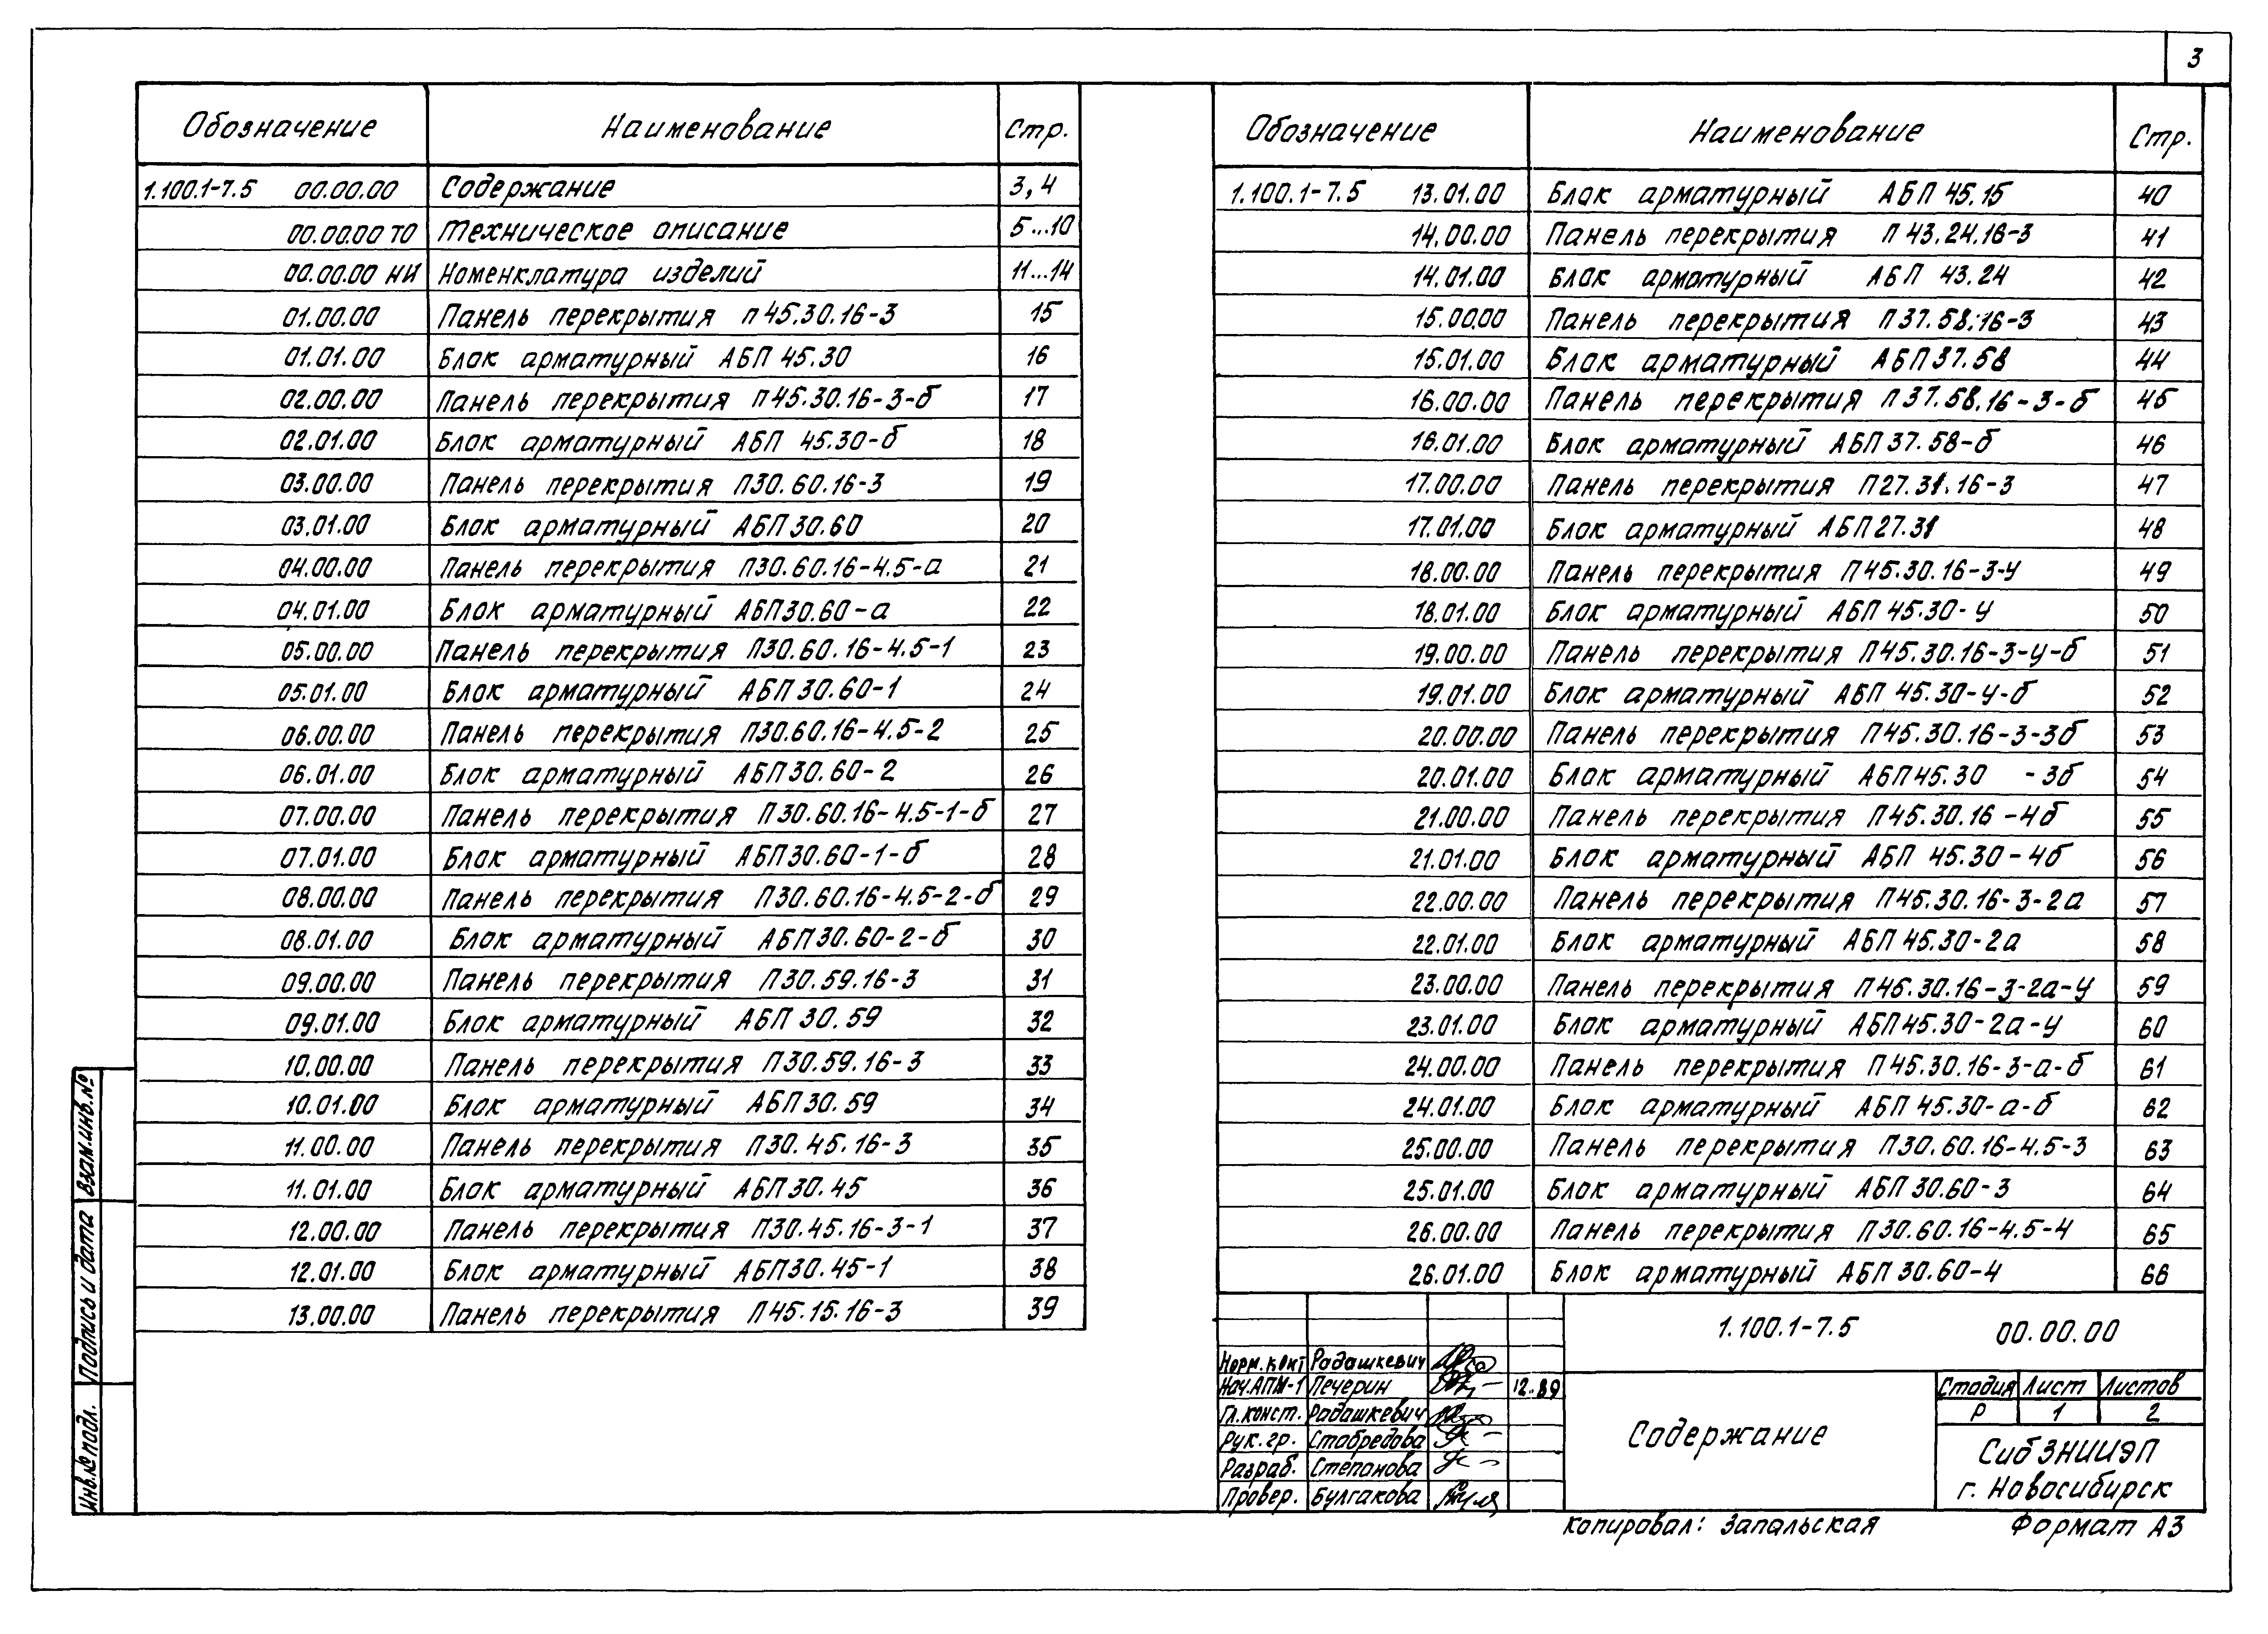 3
Обозначение Наименование Стр.
1.100.1-7.5 00.00.00 Содержание 3,4
00.00.00 ТО Техническое описание 5...10
00.00.00 НИ Номенклатура изделий 11...14
01.00.00 Панель перекрытия П45.30.16-3 15
01.01.00 Блок арматурный АБП 45.30 16
02.00.00 Панель перекрытия П45.30.16-3-б 17
02.01.00 Блок арматурный АБП 45.30-б 18
03.00.00 Панель перекрытия П30.60.16-3 19
03.01.00 Блок арматурный АБП30.60 20
04.00.00 Панель перекрытия П30.60.16-4.5-а 21
04.01.00 Блок арматурный АБП30.60-а 22
05.00.00 Панель перекрытия П30.60.16-4.5-1 23
05.01.00 Блок арматурный АБП30.60-1 24
06.00.00 Панель перекрытия П30.60.16-4.5-2 25
06.01.00 Блок арматурный АБП30.60-2 26
07.00.00 Панель перекрытия П30.60.16-4.5-1-б 27
07.01.00 Блок арматурный АБП30.60-1-б 28
08.00.00 Панель перекрытия П30.60.16-4.5-2-б 29
08.01.00 Блок арматурный АБП30.60-2-б 30
09.00.00 Панель перекрытия П30.59.16-3 31
09.01.00 Блок арматурный АБП 30.59 32
10.00.00 Панель перекрытия П30.59.16-3 33
10.01.00 Блок арматурный АБП30.59 34
11.00.00 Панель перекрытия П30.45.16-3 35
11.01.00 Блок арматурный АБП30.45 36
12.00.00 Панель перекрытия П30.45.16-3-1 37
12.01.00 Блок арматурный АБП30.45-1 38
13.00.00 Панель перекрытия П45.15.16-3 39
Обозначение Наименование Стр.
1.100.1-7.5 13.01.00 Блок арматурный АБП 45.15 40
14.00.00 Панель перекрытия П 43.24.16-3 41
14.01.00 Блок арматурный АБП 43.24 42
15.00.00 Панель перекрытия П37.58.16-3 43
15.01.00 Блок арматурный АБП37.58 44
16.00.00 Панель перекрытия П37.58.16-3-б 45
16.01.00 Блок арматурный АБП37.58-б 46
17.00.00 Панель перекрытия П27.31.16-3 47
17.01.00 Блок арматурный АБП27.31 48
18.00.00 Панель перекрытия П45.30.16-3-у 49
18.01.00 Блок арматурный АБП 45.30-у 50
19.00.00 Панель перекрытия П45.30.16-3-у-б 51
19.01.00 Блок арматурный АБП 45.30-у-б 52
20.00.00 Панель перекрытия П45.30.16-3-3б 53
20.01.00 Блок арматурный АБП45.30 -3б 54
21.00.00 Панель перекрытия П45.30.16 -4б 55
21.01.00 Блок арматурный АБП 45.30-4б 56
22.00.00 Панель перекрытия П45.30.16-3-2а 57
22.01.00 Блок арматурный АБП 45.30-2а 58
23.00.00 Панель перекрытия П45.30.16-3-2а-у 59
23.01.00 Блок арматурный АБП45.30-2а-у 60
24.00.00 Панель перекрытия П45.30.16-3-а-б 61
24.01.00 Блок арматурный АБП 45.30-а-б 62
25.00.00 Панель перекрытия П30.60.16-4.5-3 63
25.01.00 Блок арматурный АБП 30.60-3 64
26.00.00 Панель перекрытия П30.60.16-4.5-4 65
26.01.00 Блок арматурный АБП 30.60-4 66
1.100.1-7.5 00.00.00
Норм.конт Радашкевич
Нач.АПМ-1 Печерин 12.89
Гл.конст. Радашкевич
Рук.гр. Стабредова
Разраб. Степанова
Провер. Булгакова
Содержание
Стадия Лист Листов
Р 1 2
СибЗНИИЭП
г. Новосибирск
Копировал: Запальская Формат А3
Взам.инв.№
Подпись и дата
Инв.№ подл.